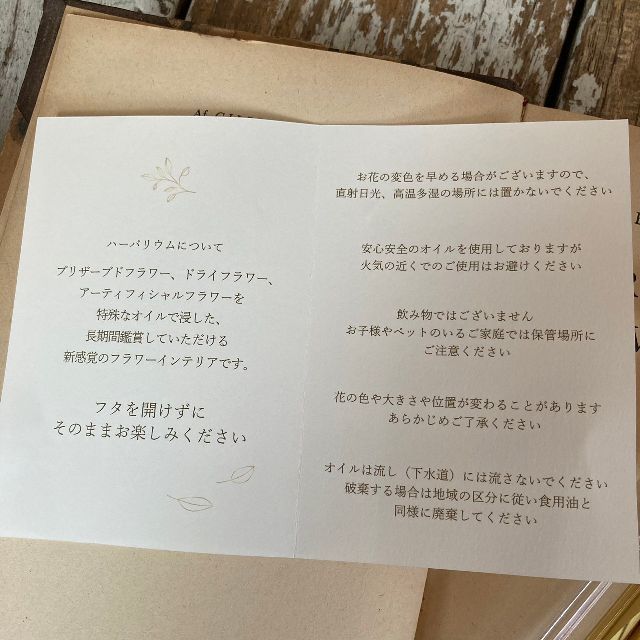 ハーバリウムについて
プリザーブドフラワー、ドライフラワー、
アーティフィシャルフラワーを
特殊なオイルで浸した、
長期間鑑賞していただける
新感覚のフラワーインテリアです。
フタを開けずに
そのままお楽しみください
お花の変色を早める場合がございますので、
直射日光、高温多湿の場所には置かないでください
安心安全のオイルを使用しておりますが
火気の近くでのご使用はお避けください
飲み物ではございません
お子様やペットのいるご家庭では保管場所に
ご注意ください
花の色や大きさや位置が変わることがあります
あらかじめご了承ください
オイルは流し（下水道）には流さないでください
破棄する場合は地域の区分に従い食用油と
同様に廃棄してください